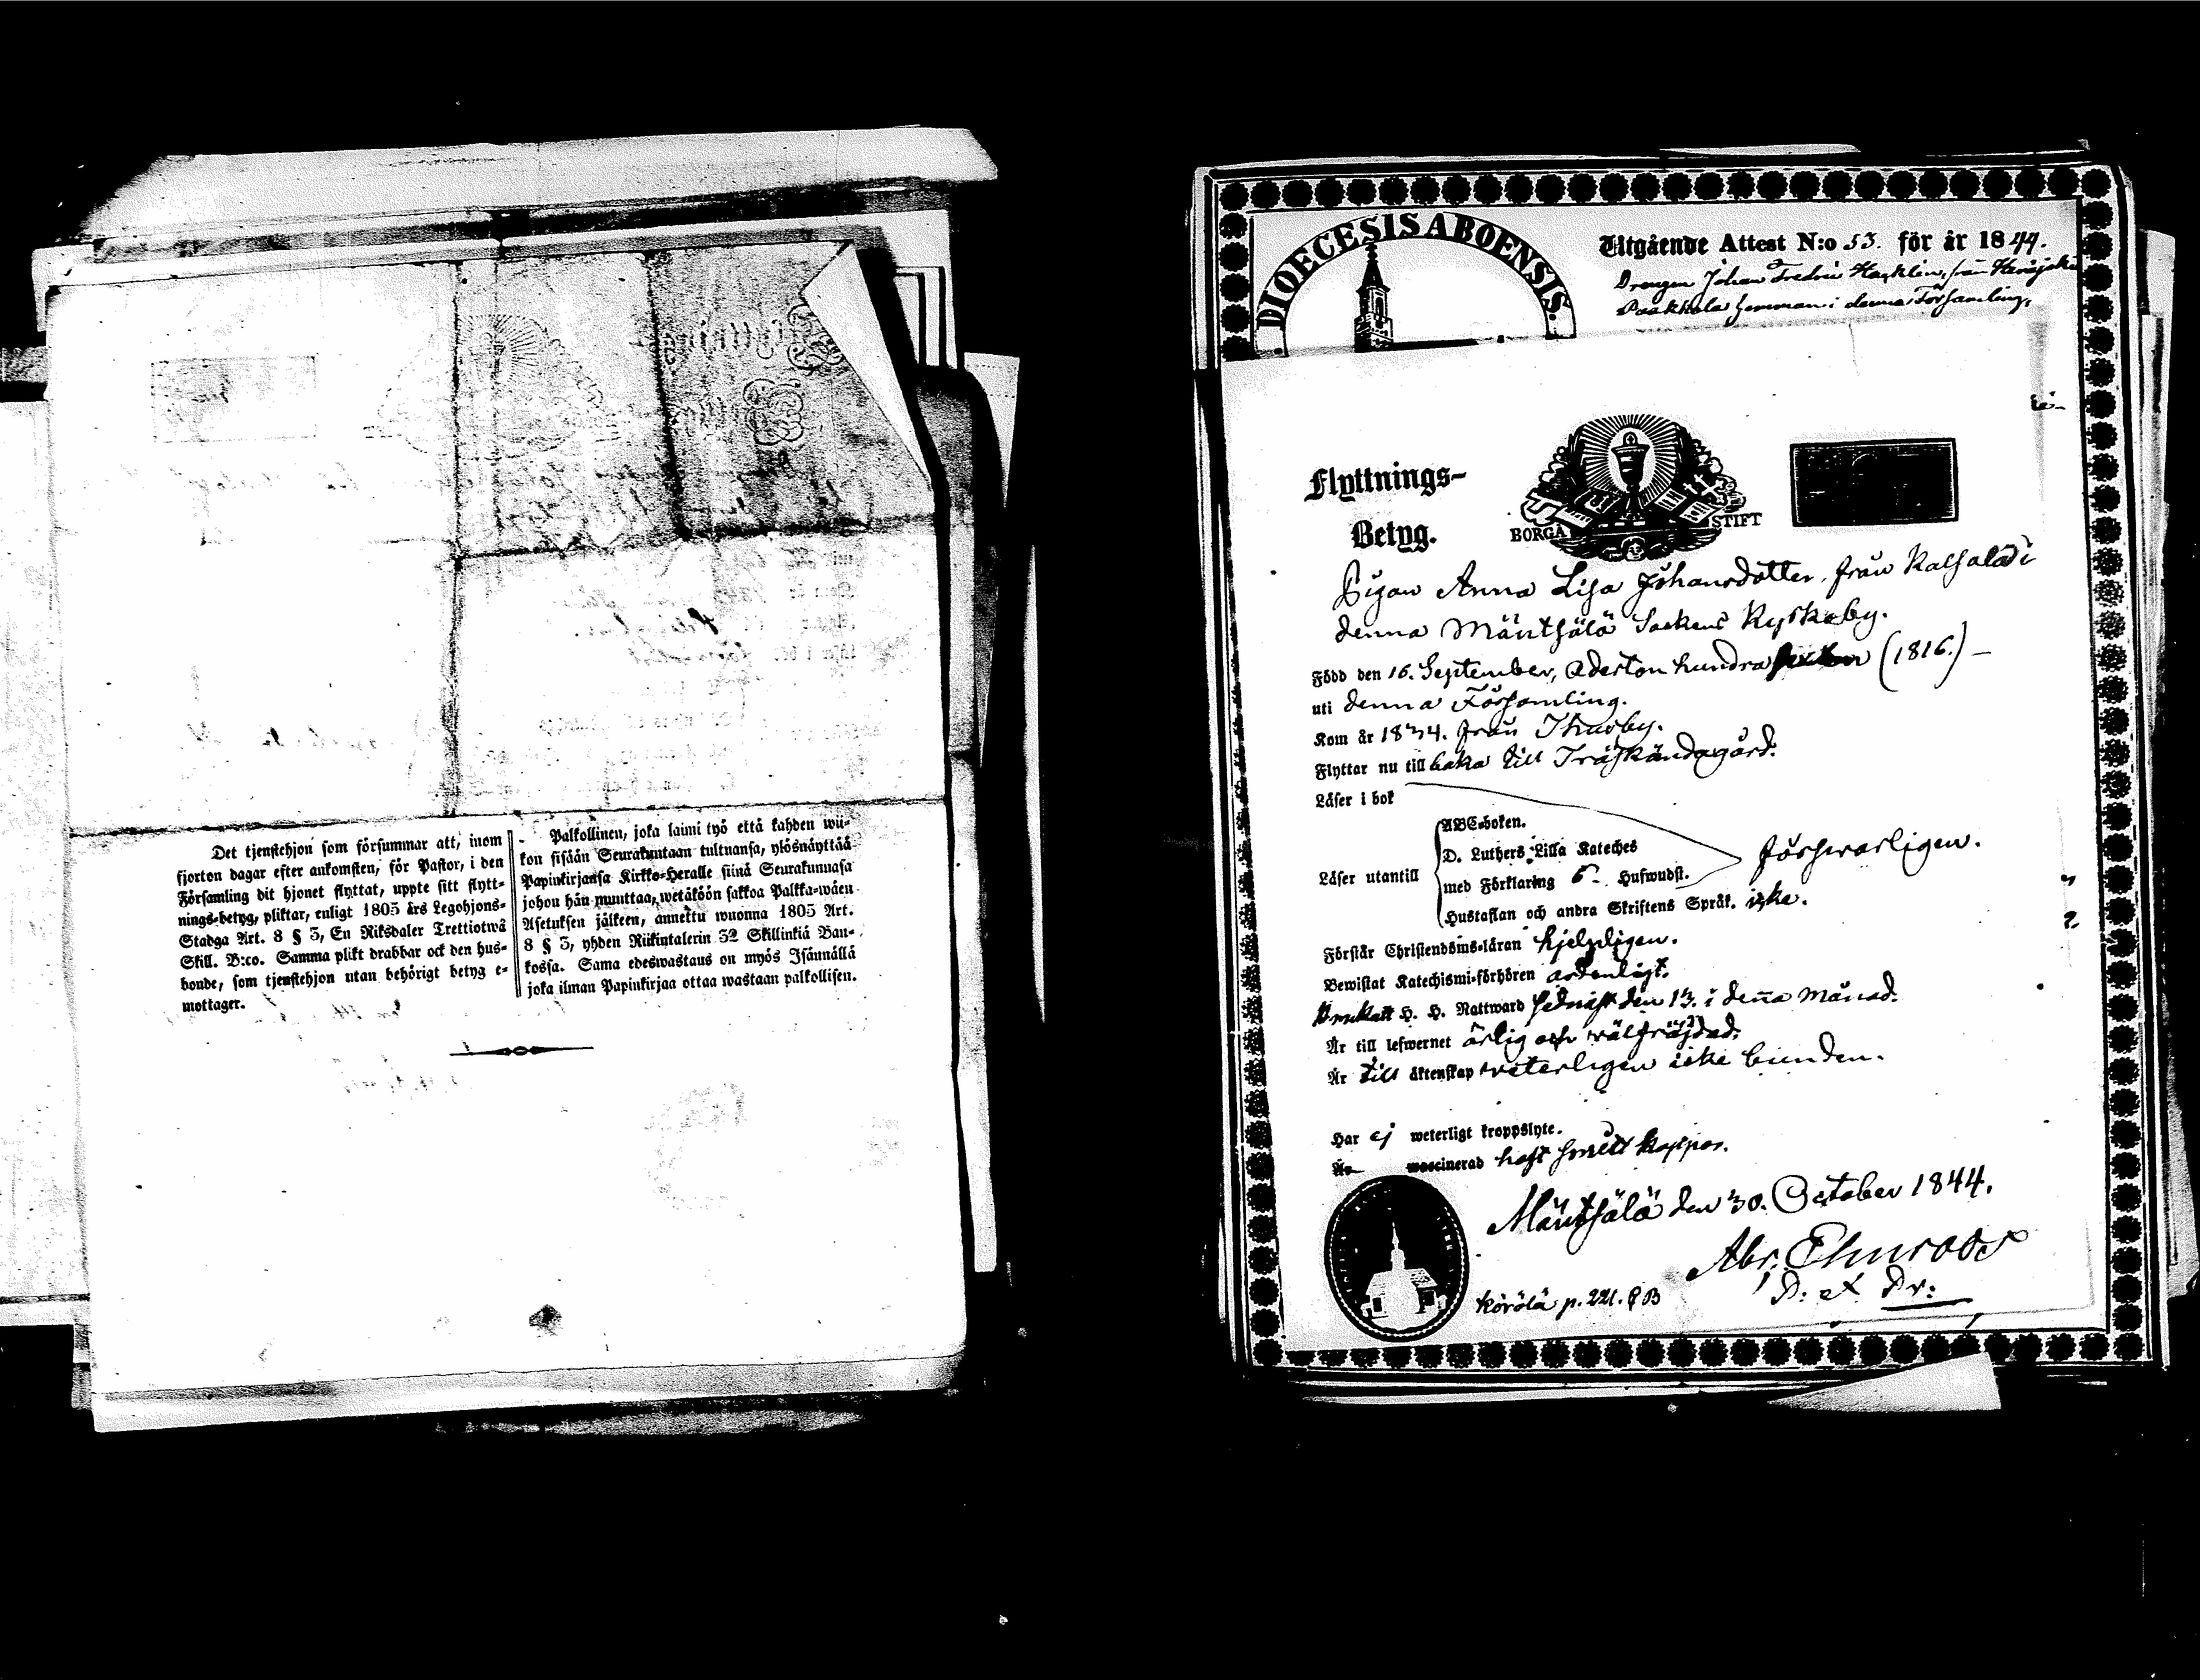 Det tjenstehjon som försummar att, inom
fjorton dagar efter ankomsten, för Pastor, i den
Församling dit hjonet flyttat, uppte sitt flytt-
nings-betyg, pliktar, enligt 1805 års Legohjons-
Stadga Art. 8 § 5, En Riksdaler Trettiotwå
Skill. B:co. Samma plikt drabbar ock den hus-
bonde, som tjenstehjon utan behörigt betyg e-
mottager.
Palkollinen, joka laimi työ että kahden wii-
kon sisään Seurakuntaan tultuansa, ylösnäyttää
Papinkirjansa Kirkko-Heralle siinä Seurakunnasa
johon hän muuttaa, wetäköön sakkoa Palkka-wäen
Asetuksen jälkeen, annettu wuonna 1805 Art.
8 § 5, yhden Riikintalerin 32 Skillinkiä Ban-
kossa. Sama edeswastaus on myös Isännällä
joka ilman Papinkirjaa ottaa wastaan palkollisen.
DIOECESIS ABOENSIS.
Utgående Attest N:o 53. för år 1844.
Drengen Johan Fredric
i denna Församling.
Flyttnings-
Betyg.
BORGÅ STIFT
Pigan Anna Lisa Johansdotter, från Kalsala i
denna Mäntsälä Sockens Kyrkoby.
Född den 16. September, Aderton hundra sexton (1816.) —
uti denna Församling.
Kom år 1834. från Thusby.
Flyttar nu till baka till Träskändagård.
Läser i bok
Läser utantill
ABC-boken.
D. Luthers Lilla Kateches
med Förklaring 5. Hufwudst.
Hustaflan och andra Skriftens Språk. icke.
förswarligen.
Förstår Christendoms-läran hjelpligen.
Bewistat Katechismi-förhören ordenligt.
H. H. Nattward sednast den 13. i denna Månad.
Är till lefwernet ärlig och wälfräjdad.
Är till äktenskap veterligen icke bunden.
Har ej weterligt kroppslyte.
Är waccinerad haft smått koppor.
Mäntsälä den 30. October 1844.
Abr. Ehnroos
P: et Pr:
Körölä p. 221.